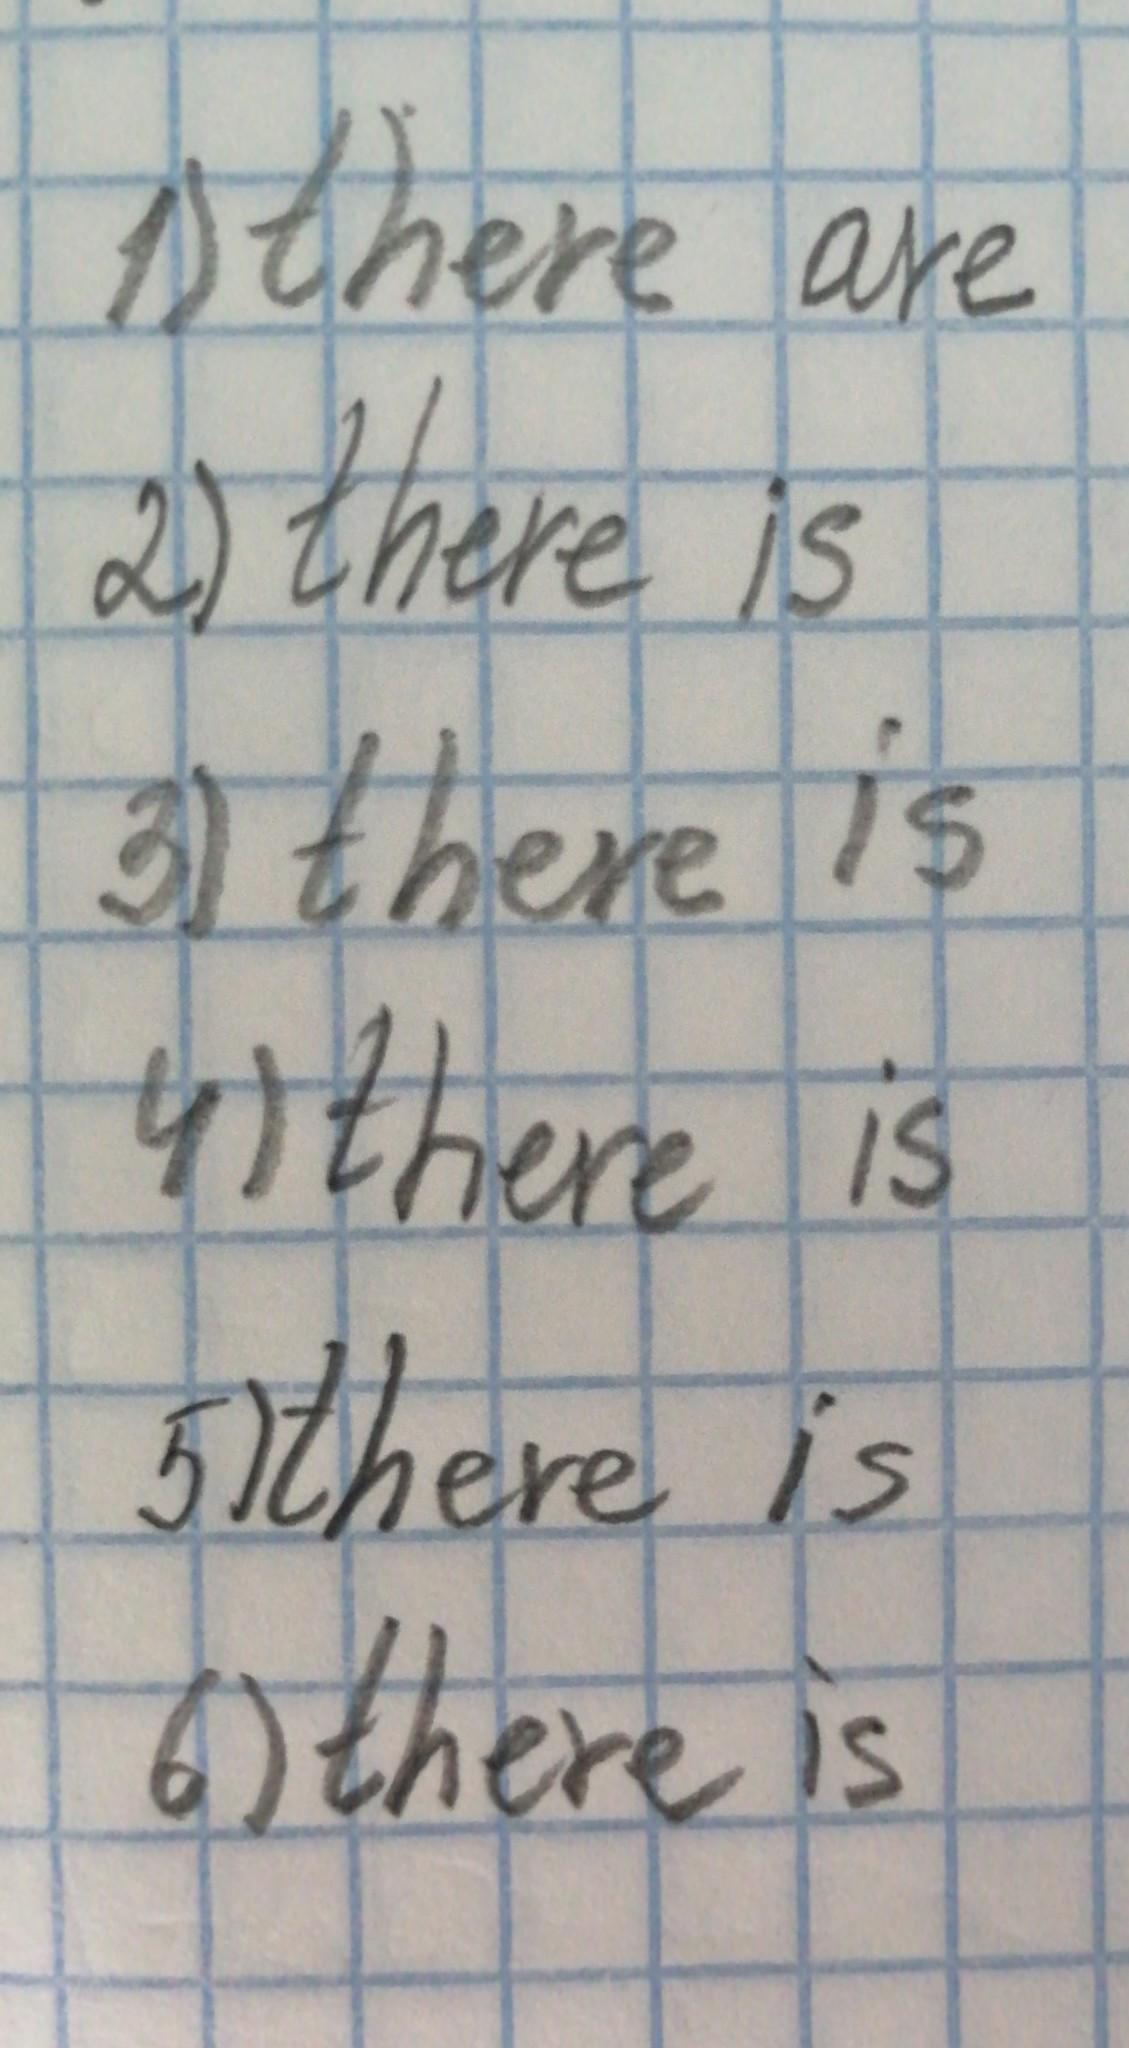 1) there are
2) there is
3) there is
4) there is
5) there is
6) there is